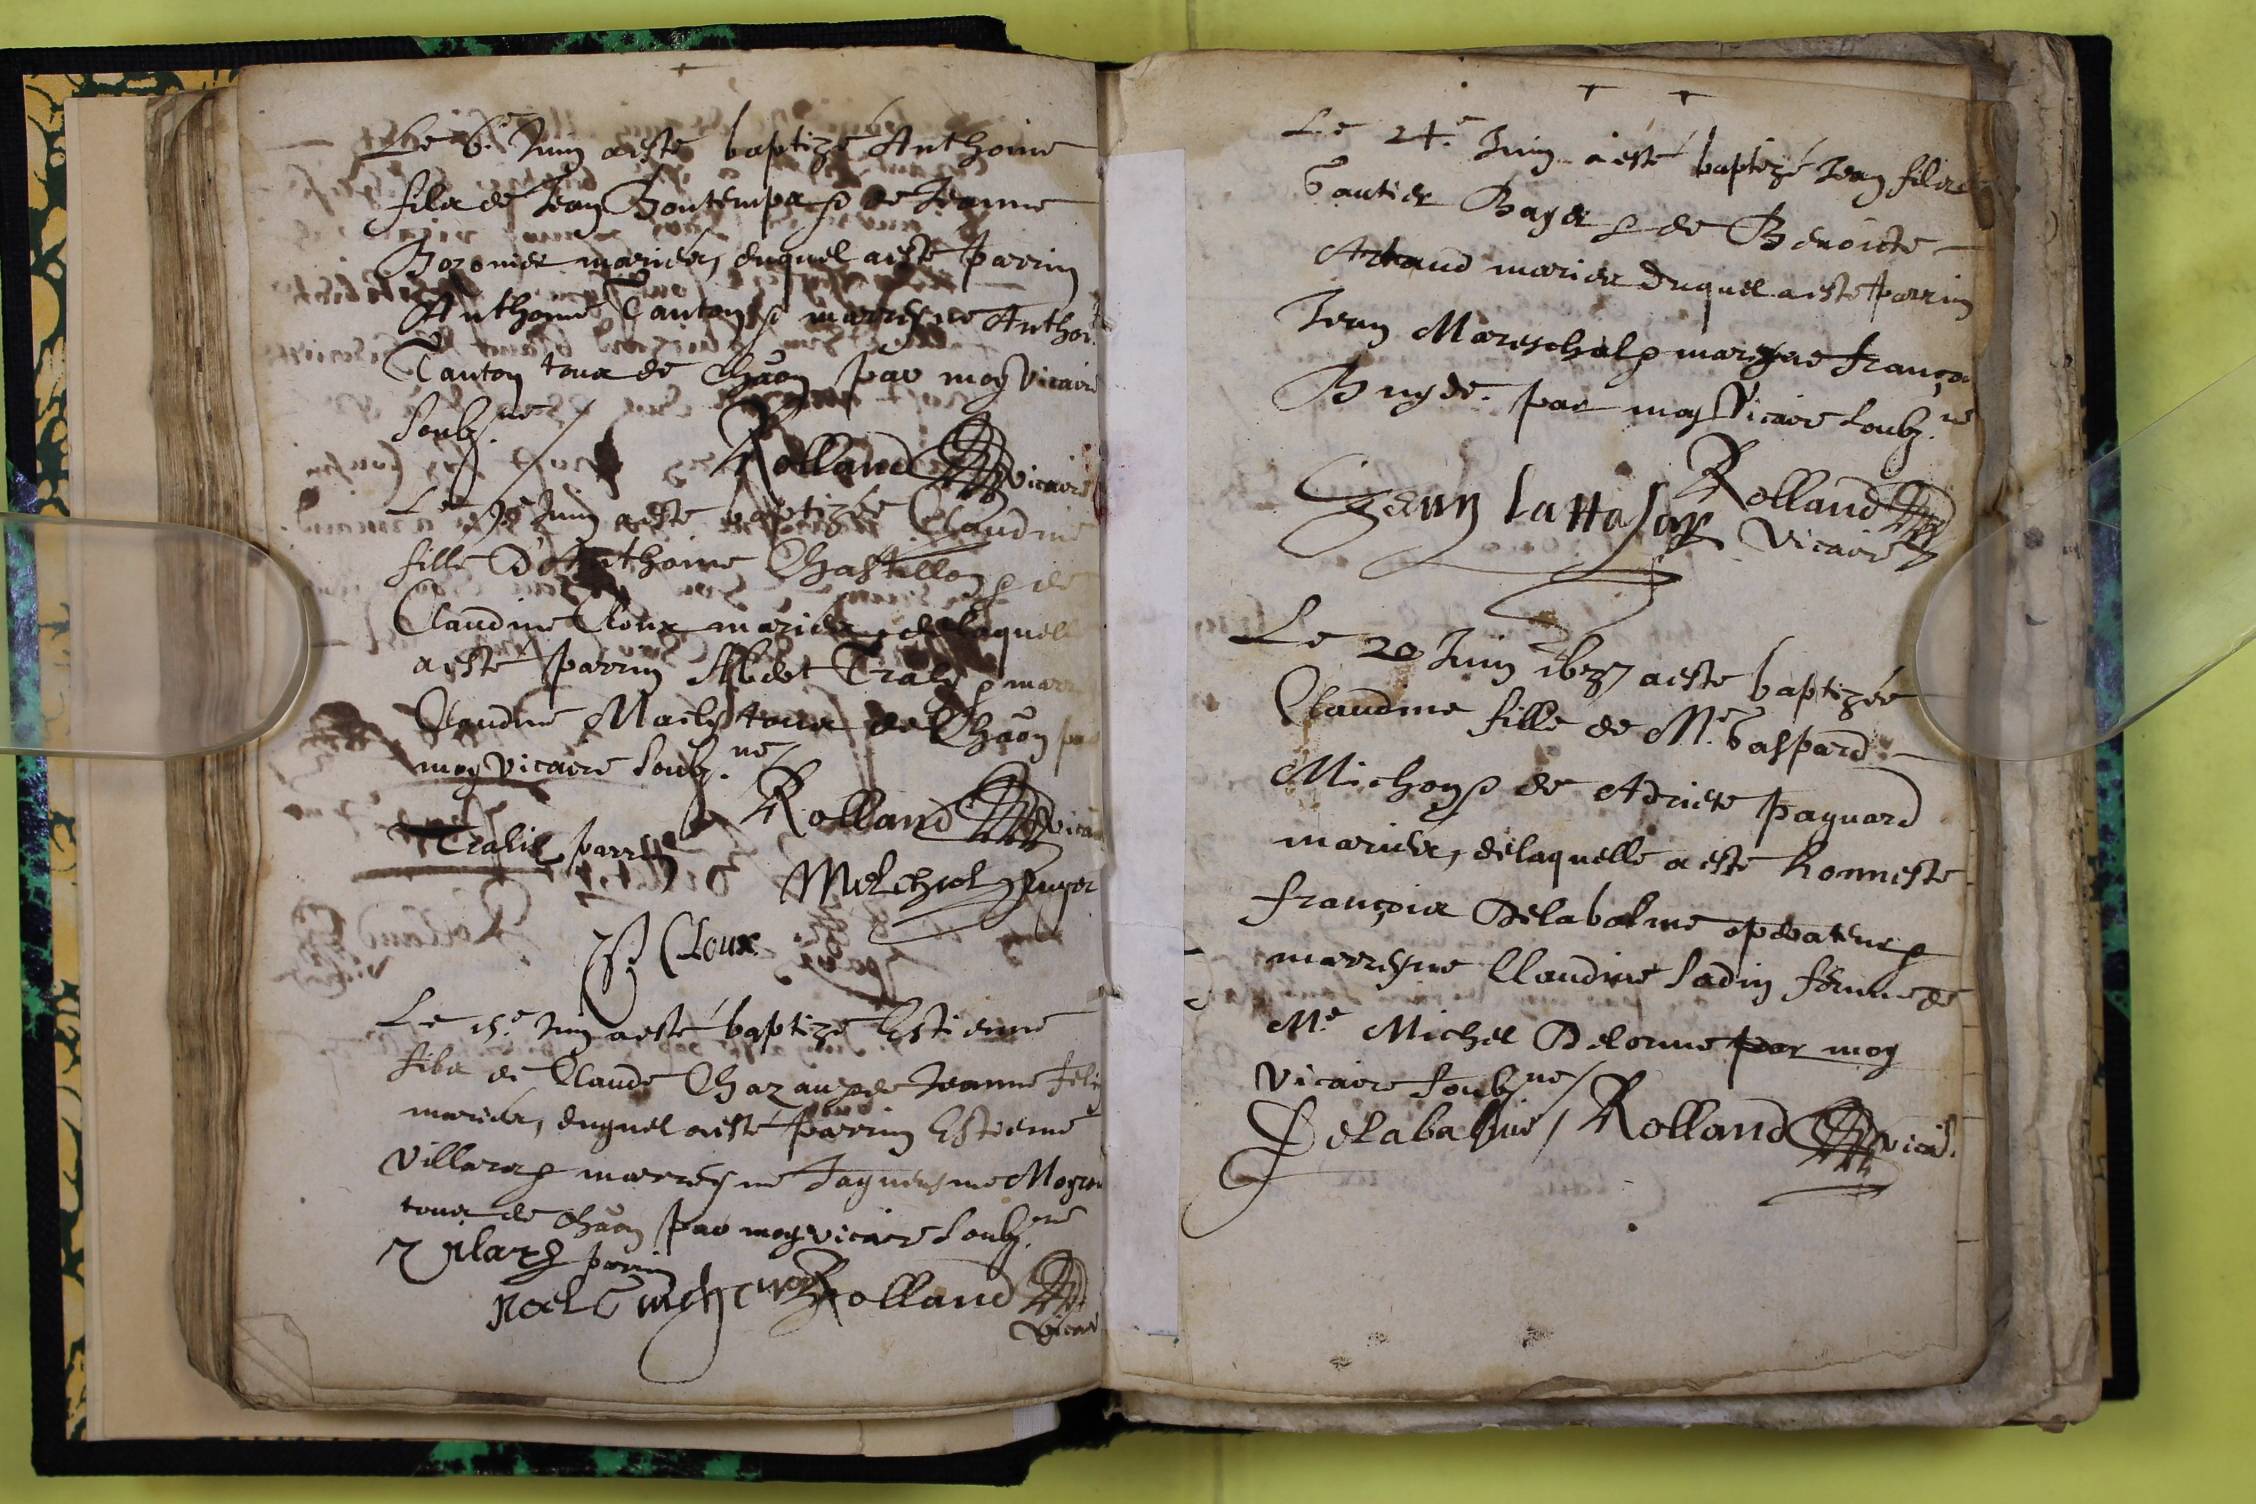 Le 6e Juin a esté baptizé Anthoine
filz de Jean Bontemps & de Jeanne
mariez, duquel a esté parrin
Anthoine Tanton & marreyne Anthoi.
Tanton tous de Chãon par moy vicaire
soubz.né
Rolland vicaire
Le Juin a esté baptizée Claudine
fille d'Anthoine Chastillon & de
Claudine Cloux mariez, de laquelle
a esté parrin Traly & marr
Claudine Maily tous de Chãon par
moy vicaire soubz.né
Rolland vicai
Tralis parrin
Melchiol
Cloux
Le 15.e Juin a esté baptizé Estienne
filz de Claude Chazaux & de Jeanne
mariez, duquel a esté parrin Estienne
Villars & marreyne
tous de Chãon par moy vicaire soubz.né
Vilars parrin
Noel Rolland
vicai
Le 24.e Juin a esté baptizé Jean filz de
Gautier Bayer & de Benoicte
Artaud mariez duquel a esté parrin
Jean Mareschal & marreyne Françoi
par moy Vicaire soubz.né
Rolland
Vicaire
Le 20 Juin a esté baptizée
Claudine fille de M.e Gaspard
Michon & de Adriete Paquard
mariez, de laquelle a esté honneste
François Delabalme operateur &
marreyne Claudine Ladin femme de
M.e Michel Delorme par moy
vicaire soubzné
Delabalme Rolland vicai.